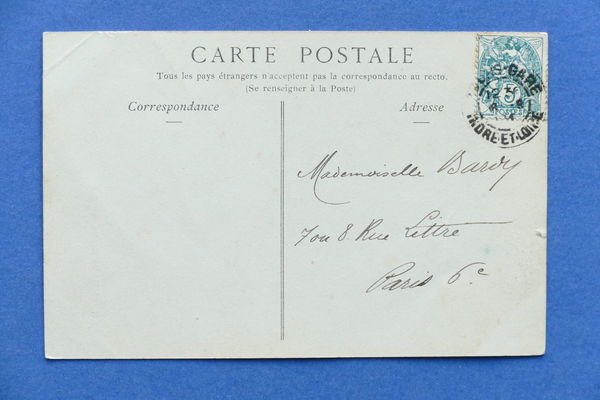 CARTE POSTALE
Tous les pays étrangers n'acceptent pas la correspondance au recto.
(Se renseigner à la Poste)
Correspondance
Adresse
Mademoiselle Bardy
7 ou 8. Rue Littré
Paris 6e
GARE
INDRE-ET-LOIRE
5